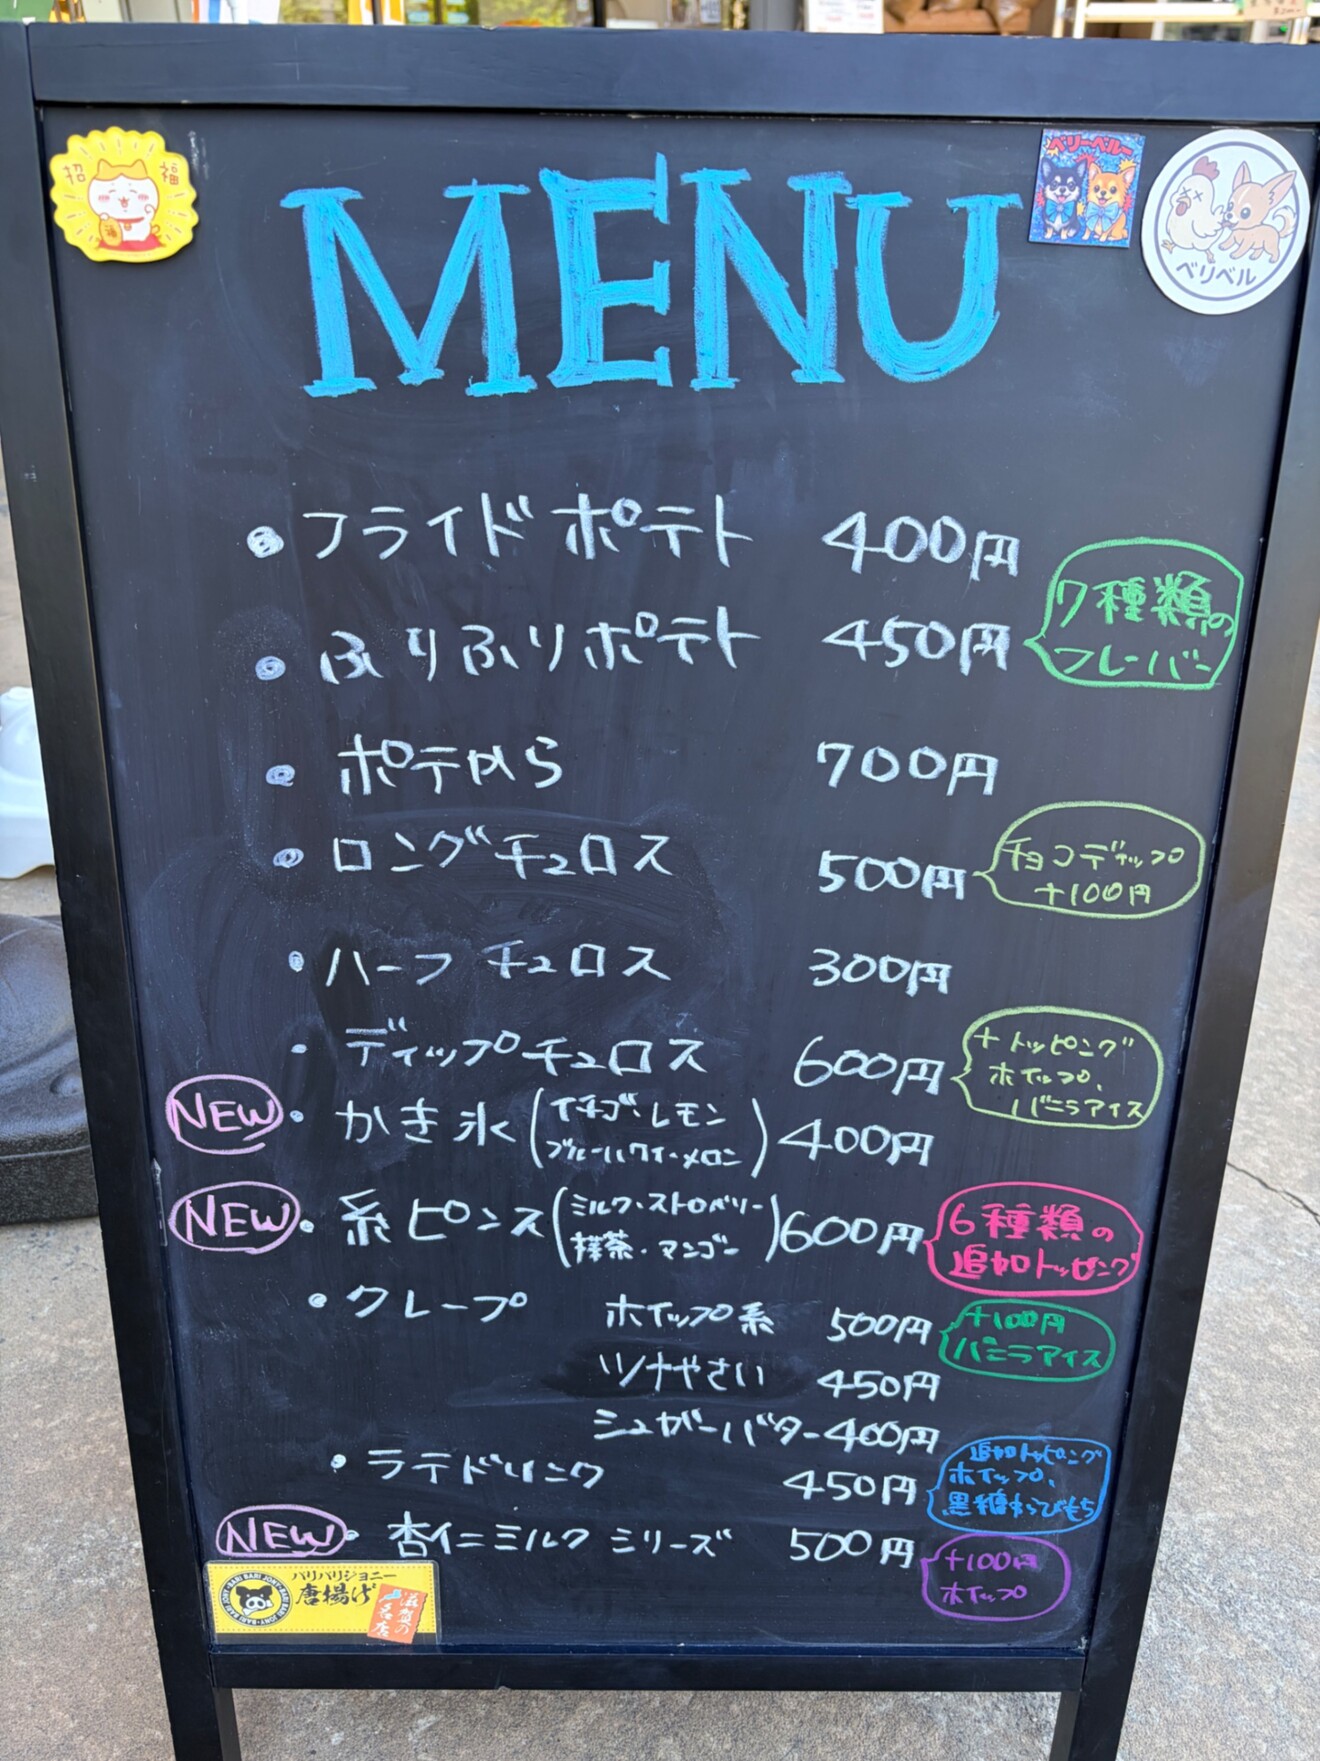 招 福
ベリーベルー
ベリベル
MENU
・フライドポテト 400円
7種類の
フレーバー
・ふりふりポテト 450円
・ポテから 700円
・ロングチュロス 500円
チョコディップ
+100円
・ハーフチュロス 300円
・ディップチュロス 600円
+トッピング
ホイップ、
バニラアイス
NEW ・かき氷(イチゴ・レモン
ブルーハワイ・メロン) 400円
NEW ・糸ピンス(ミルク・ストロベリー
抹茶・マンゴー) 600円
6種類の
追加トッピング
・クレープ ホイップ系 500円
+100円
バニラアイス
ツナやさい 450円
シュガーバター 400円
・ラテドリンク 450円
追加トッピング
ホイップ、
黒糖わらびもち
NEW ・杏仁ミルクシリーズ 500円
+100円
ホイップ
バリバリジョニー
唐揚げ
滋賀の
名店